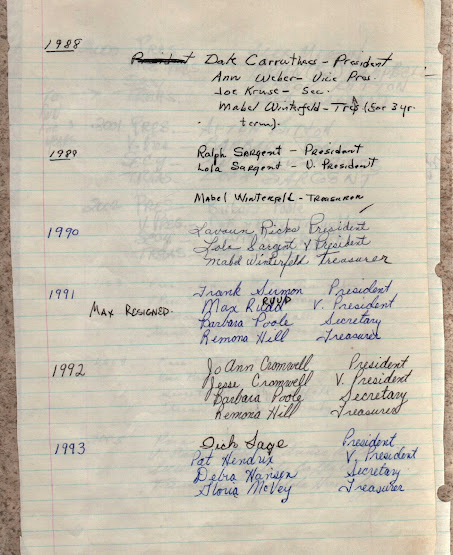 1988
President Dale Carruthers - President
Ann Weber - Vice Pres.
Joe Kruse - Sec.
Mabel Winterfeld - Tres (for 3 yr.
term).
1989
Ralph Sargent - President
Lola Sargent - V. President
Mabel Winterfeld - Treasurer
1990
Lavaun Ricks President
Lola Sargent V President
Mabel Winterfeld Treasurer
1991
Frank President
RUUD
MAX RESIGNED. Max Rudd V. President
Barbara Poole Secretary
Remona Hill Treasurer
1992
JoAnn Cromwell President
Jesse Cromwell V. President
Barbara Poole Secretary
Remona Hill Treasurer
1993
Dick Sage President
Pat Hendrix V. President
Debra Hansen Secretary
Gloria McVey Treasurer